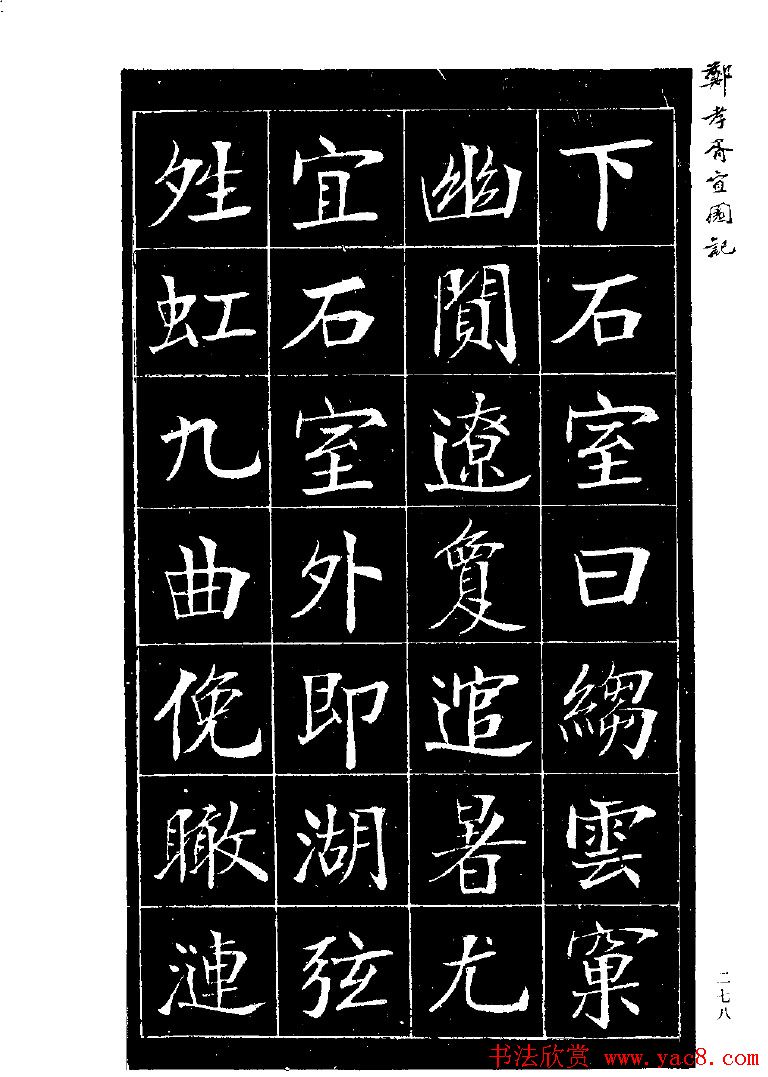 鄭孝胥宜園記
下石室曰縐雲窠
幽閒遼夐逭暑尤
宜石室外即湖弦
夝虹九曲俛瞰漣
二七八
书法欣赏 www.yac8.com